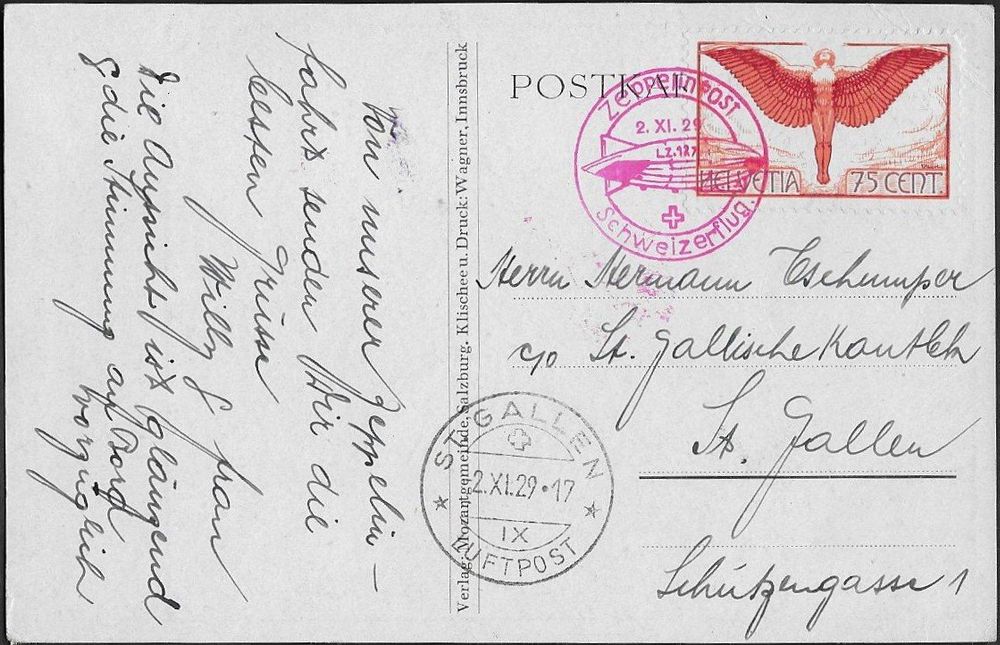 Von unserer Zeppelin-
fahrt senden Wir die
besten Grüsse
Willy & Frau
Die Aussicht ist glänzend
& die Stimmung auf Bord
vorzüglich
Verlag: Mozartgemeinde, Salzburg. Klischee u. Druck: Wagner, Innsbruck
POSTKAR
Zeppelinpost
2. XI. 29
L.Z.127
Schweizerflug.
HELVETIA 75 CENT.
Herrn Hermann Tschumper
c/o St. Gallische Kantbk
St. Gallen
Schützengasse 1
ST. GALLEN
2.XI.29·17
IX
LUFTPOST